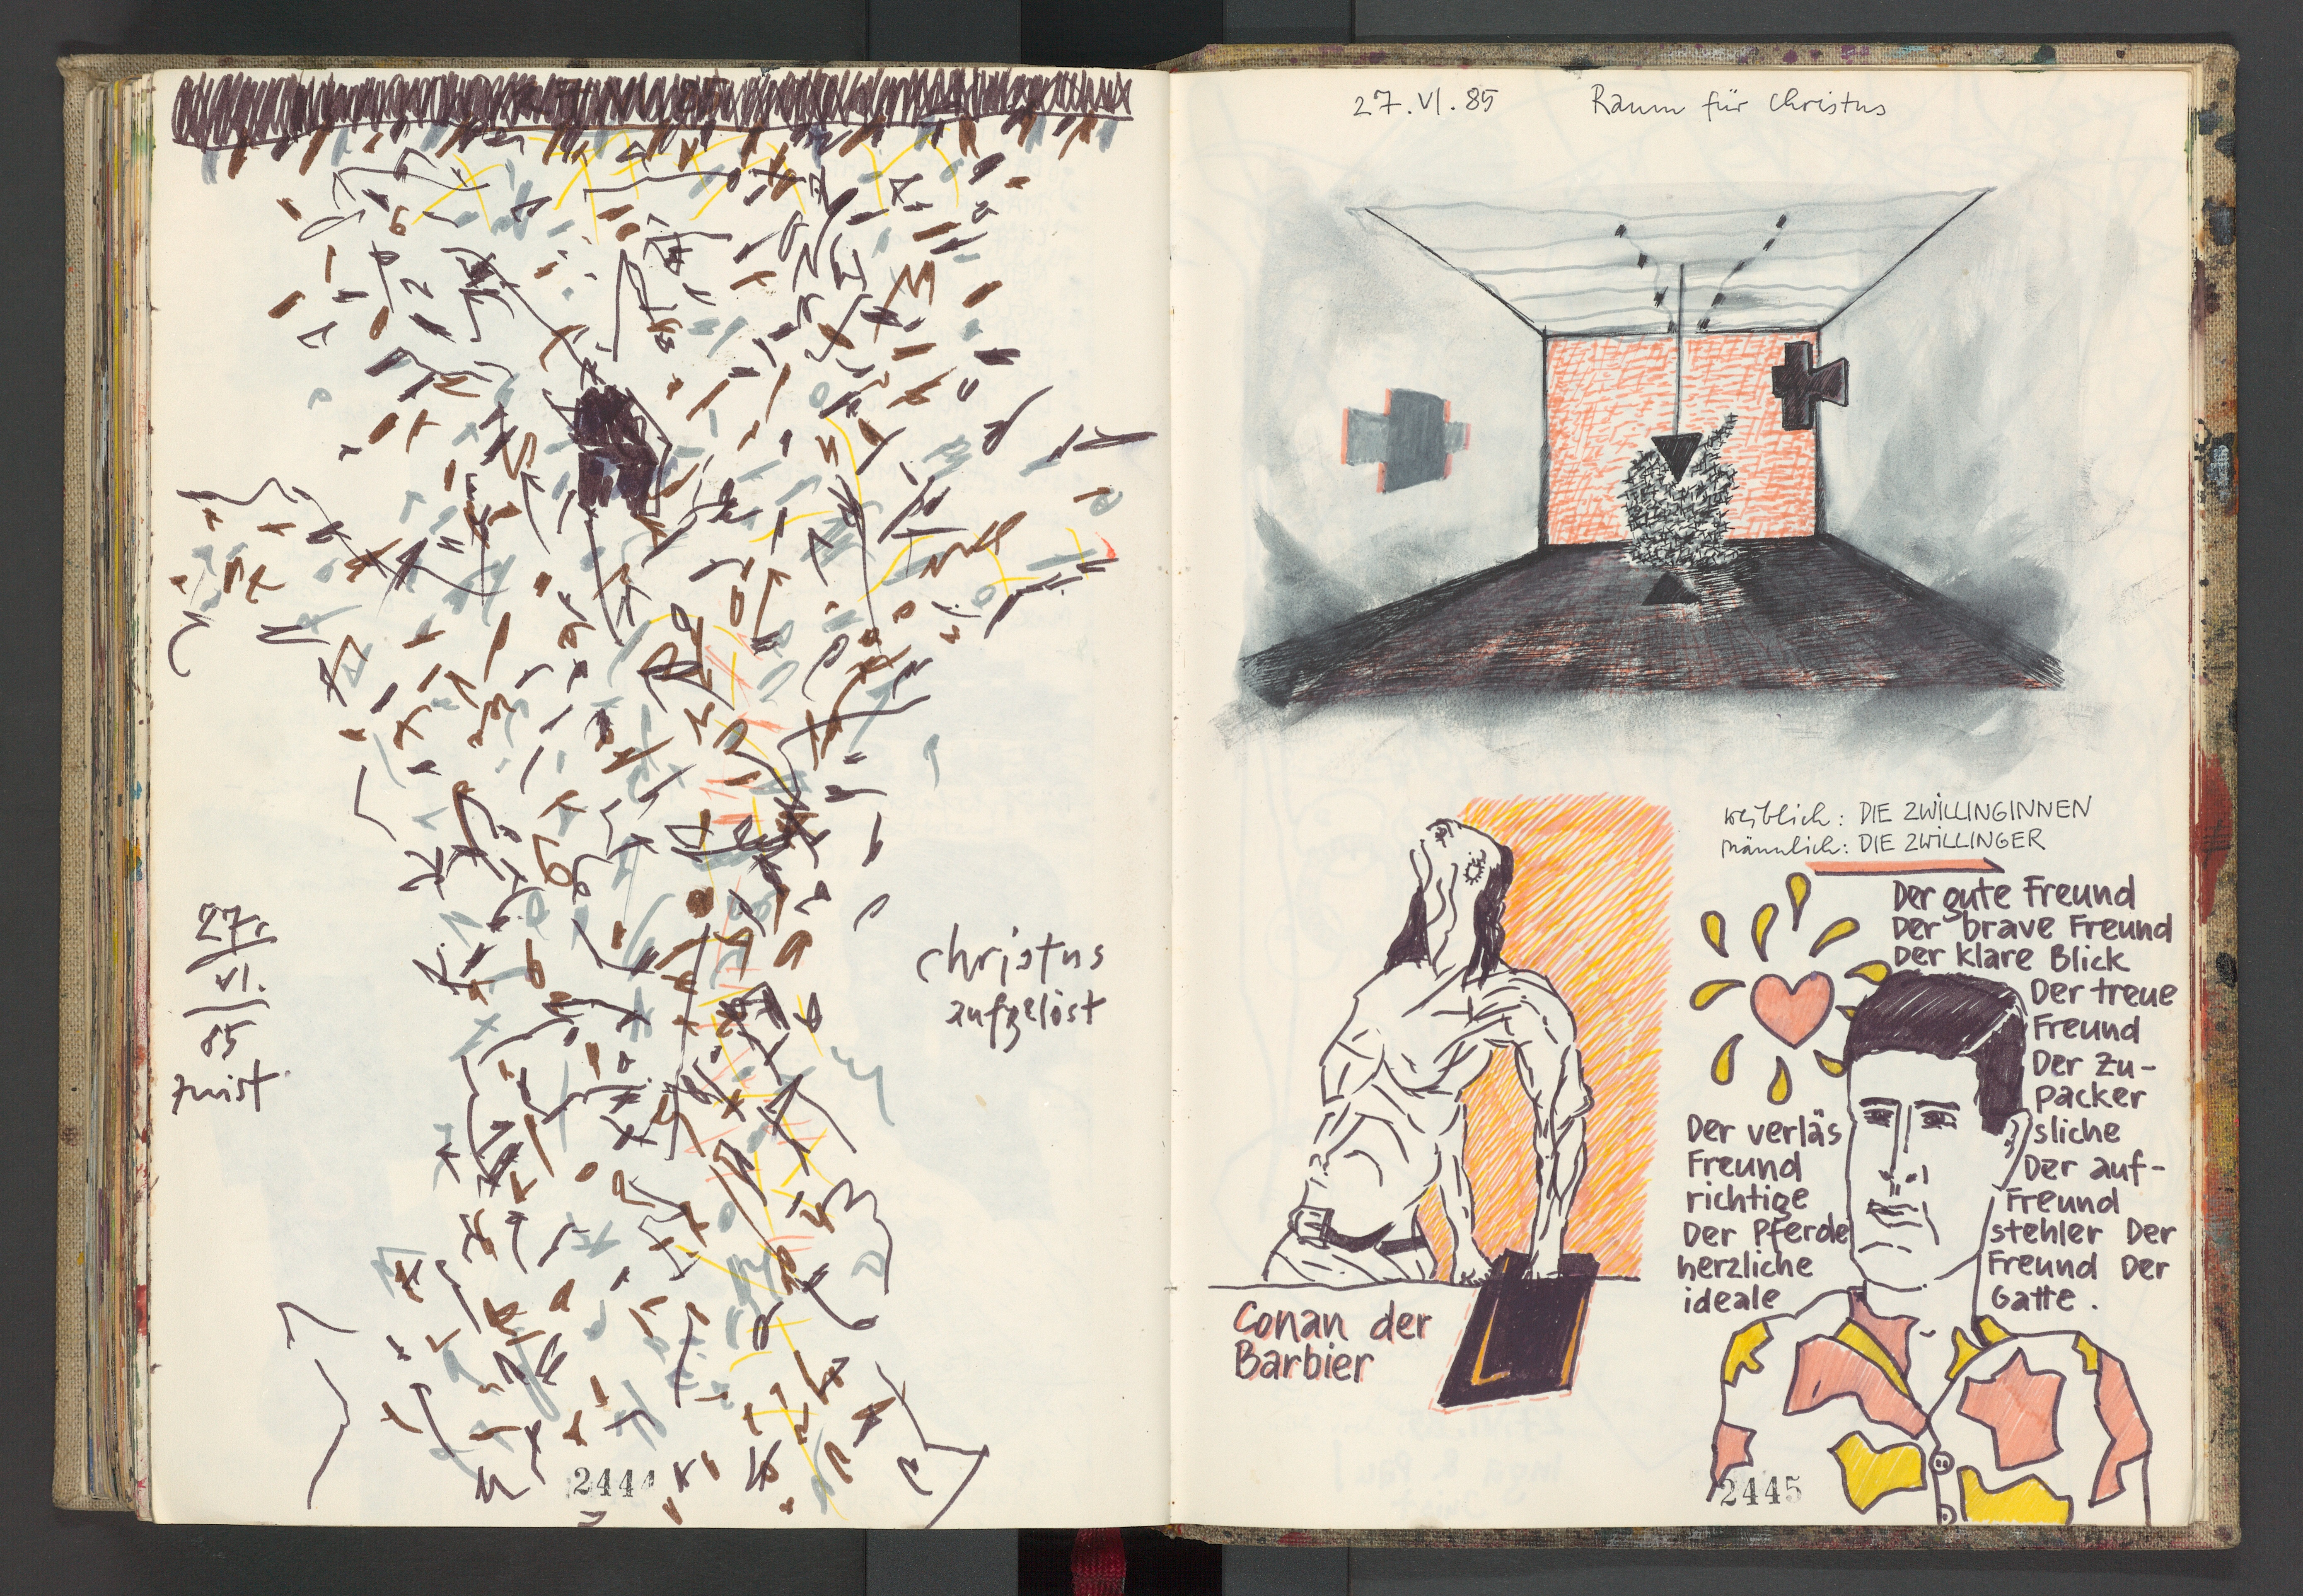 27.
VI.
85
christus
aufgelöst
2444
27.VI.85 Raum für Christus
weiblich: DIE ZWILLINGINNEN
männlich: DIE ZWILLINGER
Der gute Freund
Der brave Freund
Der klare Blick
Der treue
Freund
Der Zu-
packer
Der verläs sliche
Freund Der auf-
richtige Freund
Der Pferde stehler Der
herzliche Freund Der
ideale Gatte.
Conan der
Barbier
2445